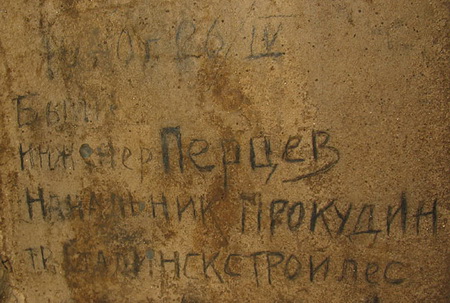 26/IV
Были
инженер Перцев
Начальник Прокудин
тр. Сталинскстройлес